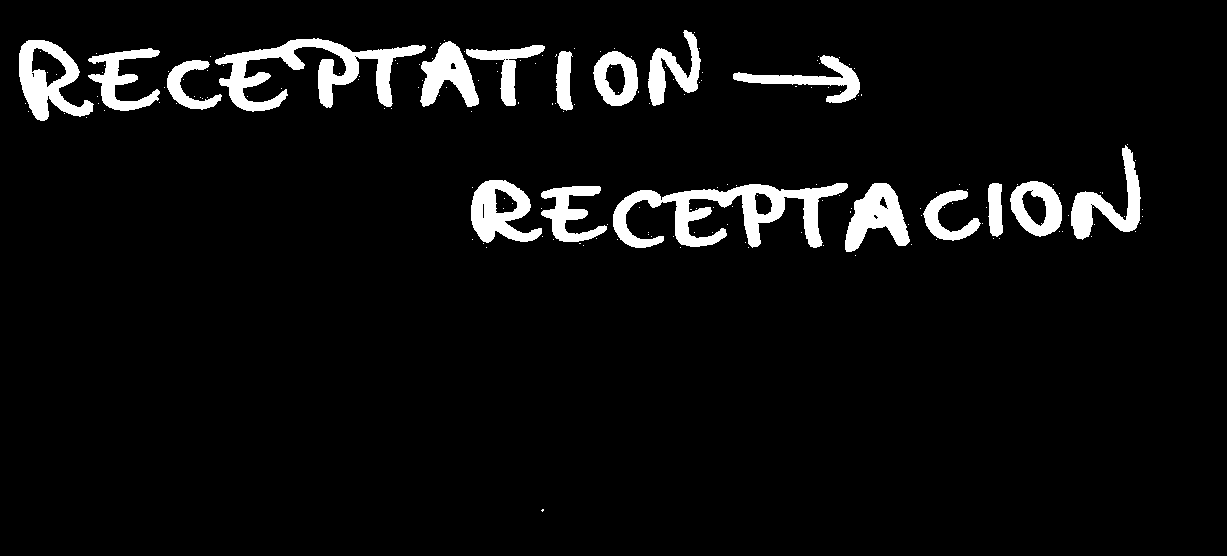 RECEPTATION →
RECEPTACION